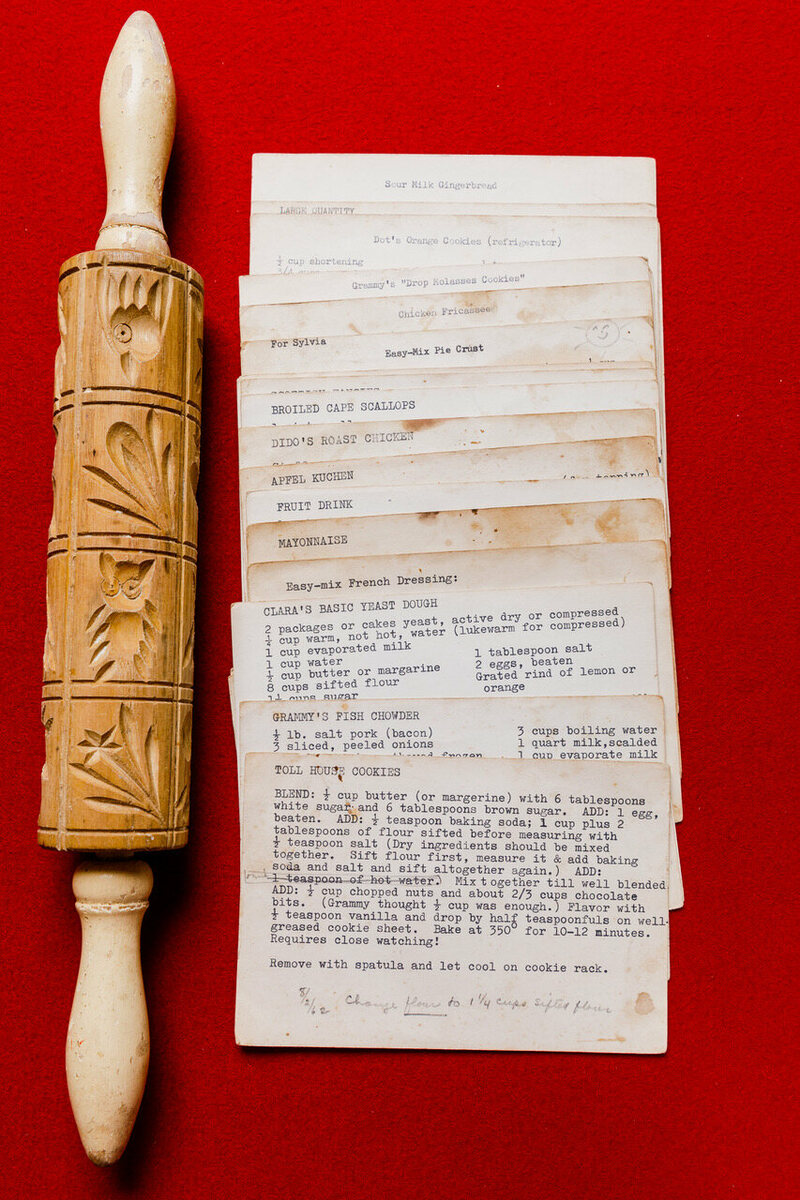 Sour Milk Gingerbread
LARGE QUANTITY
Dot's Orange Cookies (refrigerator)
½ cup shortening
Grammy's "Drop Molasses Cookies"
Chicken Fricassee
For Sylvia
Easy-Mix Pie Crust
BROILED CAPE SCALLOPS
DIDO'S ROAST CHICKEN
APFEL KUCHEN
FRUIT DRINK
MAYONNAISE
Easy-mix French Dressing:
CLARA'S BASIC YEAST DOUGH
2 packages or cakes yeast, active dry or compressed
½ cup warm, not hot, water (lukewarm for compressed)
1 cup evaporated milk
1 cup water
½ cup butter or margarine
8 cups sifted flour
1½ cups sugar
1 tablespoon salt
2 eggs, beaten
Grated rind of lemon or
orange
GRAMMY'S FISH CHOWDER
½ lb. salt pork (bacon)
3 sliced, peeled onions
frozen
3 cups boiling water
1 quart milk,scalded
1 cup evaporate milk
TOLL HOUSE COOKIES
BLEND: ½ cup butter (or margerine) with 6 tablespoons
white sugar and 6 tablespoons brown sugar. ADD: 1 egg,
beaten. ADD: ½ teaspoon baking soda; 1 cup plus 2
tablespoons of flour sifted before measuring with
½ teaspoon salt (Dry ingredients should be mixed
together. Sift flour first, measure it & add baking
soda and salt and sift altogether again.) ADD:
1 teaspoon of hot water.) Mix together till well blended.
ADD: ½ cup chopped nuts and about 2/3 cups chocolate
bits. (Grammy thought ½ cup was enough.) Flavor with
½ teaspoon vanilla and drop by half teaspoonfuls on well-
greased cookie sheet. Bake at 350° for 10-12 minutes.
Requires close watching!
Remove with spatula and let cool on cookie rack.
8/2/62 Change flour to 1 1/4 cups sifted flour